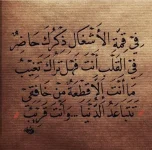 في قمة الأشغال ذكرك حاضر
في القلب أنت فهل تراك تغيب
ما أنت إلا قطعة من خافقي
تتباعد الدنيا ... وأنت قريب